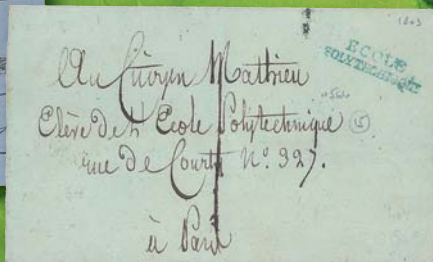 1803
ECOLE
POLYTECHNIQUE
Au Citoyen Mathieu
Elève de l'Ecole Polytechnique
rue de Courty N.º 327.
à Paris